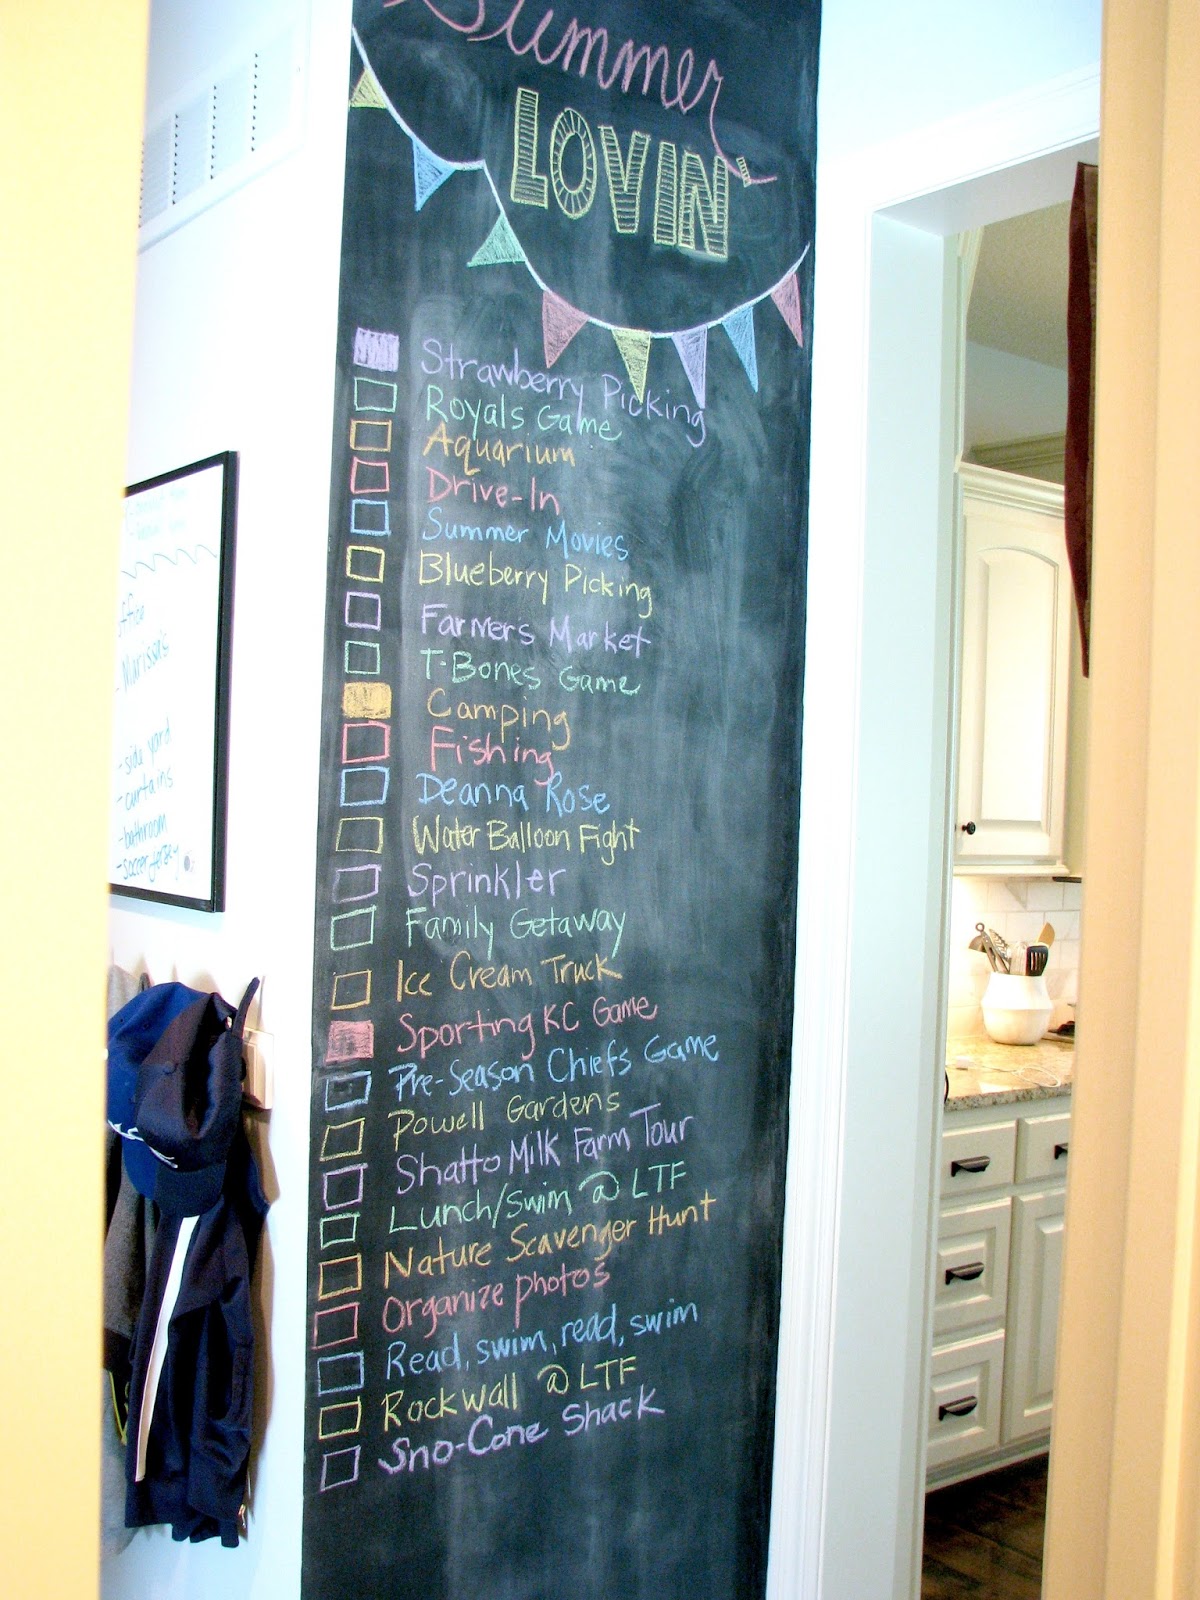 Summer
LOVIN'
Strawberry Picking
Royals Game
Aquarium
Drive-In
Summer Movies
Blueberry Picking
Farmers Market
T-Bones Game
Camping
Fishing
Deanna Rose
Water Balloon Fight
Sprinkler
Family Getaway
Ice Cream Truck
Sporting KC Game
Pre-Season Chiefs Game
Powell Gardens
Shatto Milk Farm Tour
Lunch/Swim @ LTF
Nature Scavenger Hunt
Organize photos
Read, swim, read, swim
Rockwall @ LTF
Sno-Cone Shack
office
- Marissa's
- side yard
- curtains
- bathroom
- soccer jersey